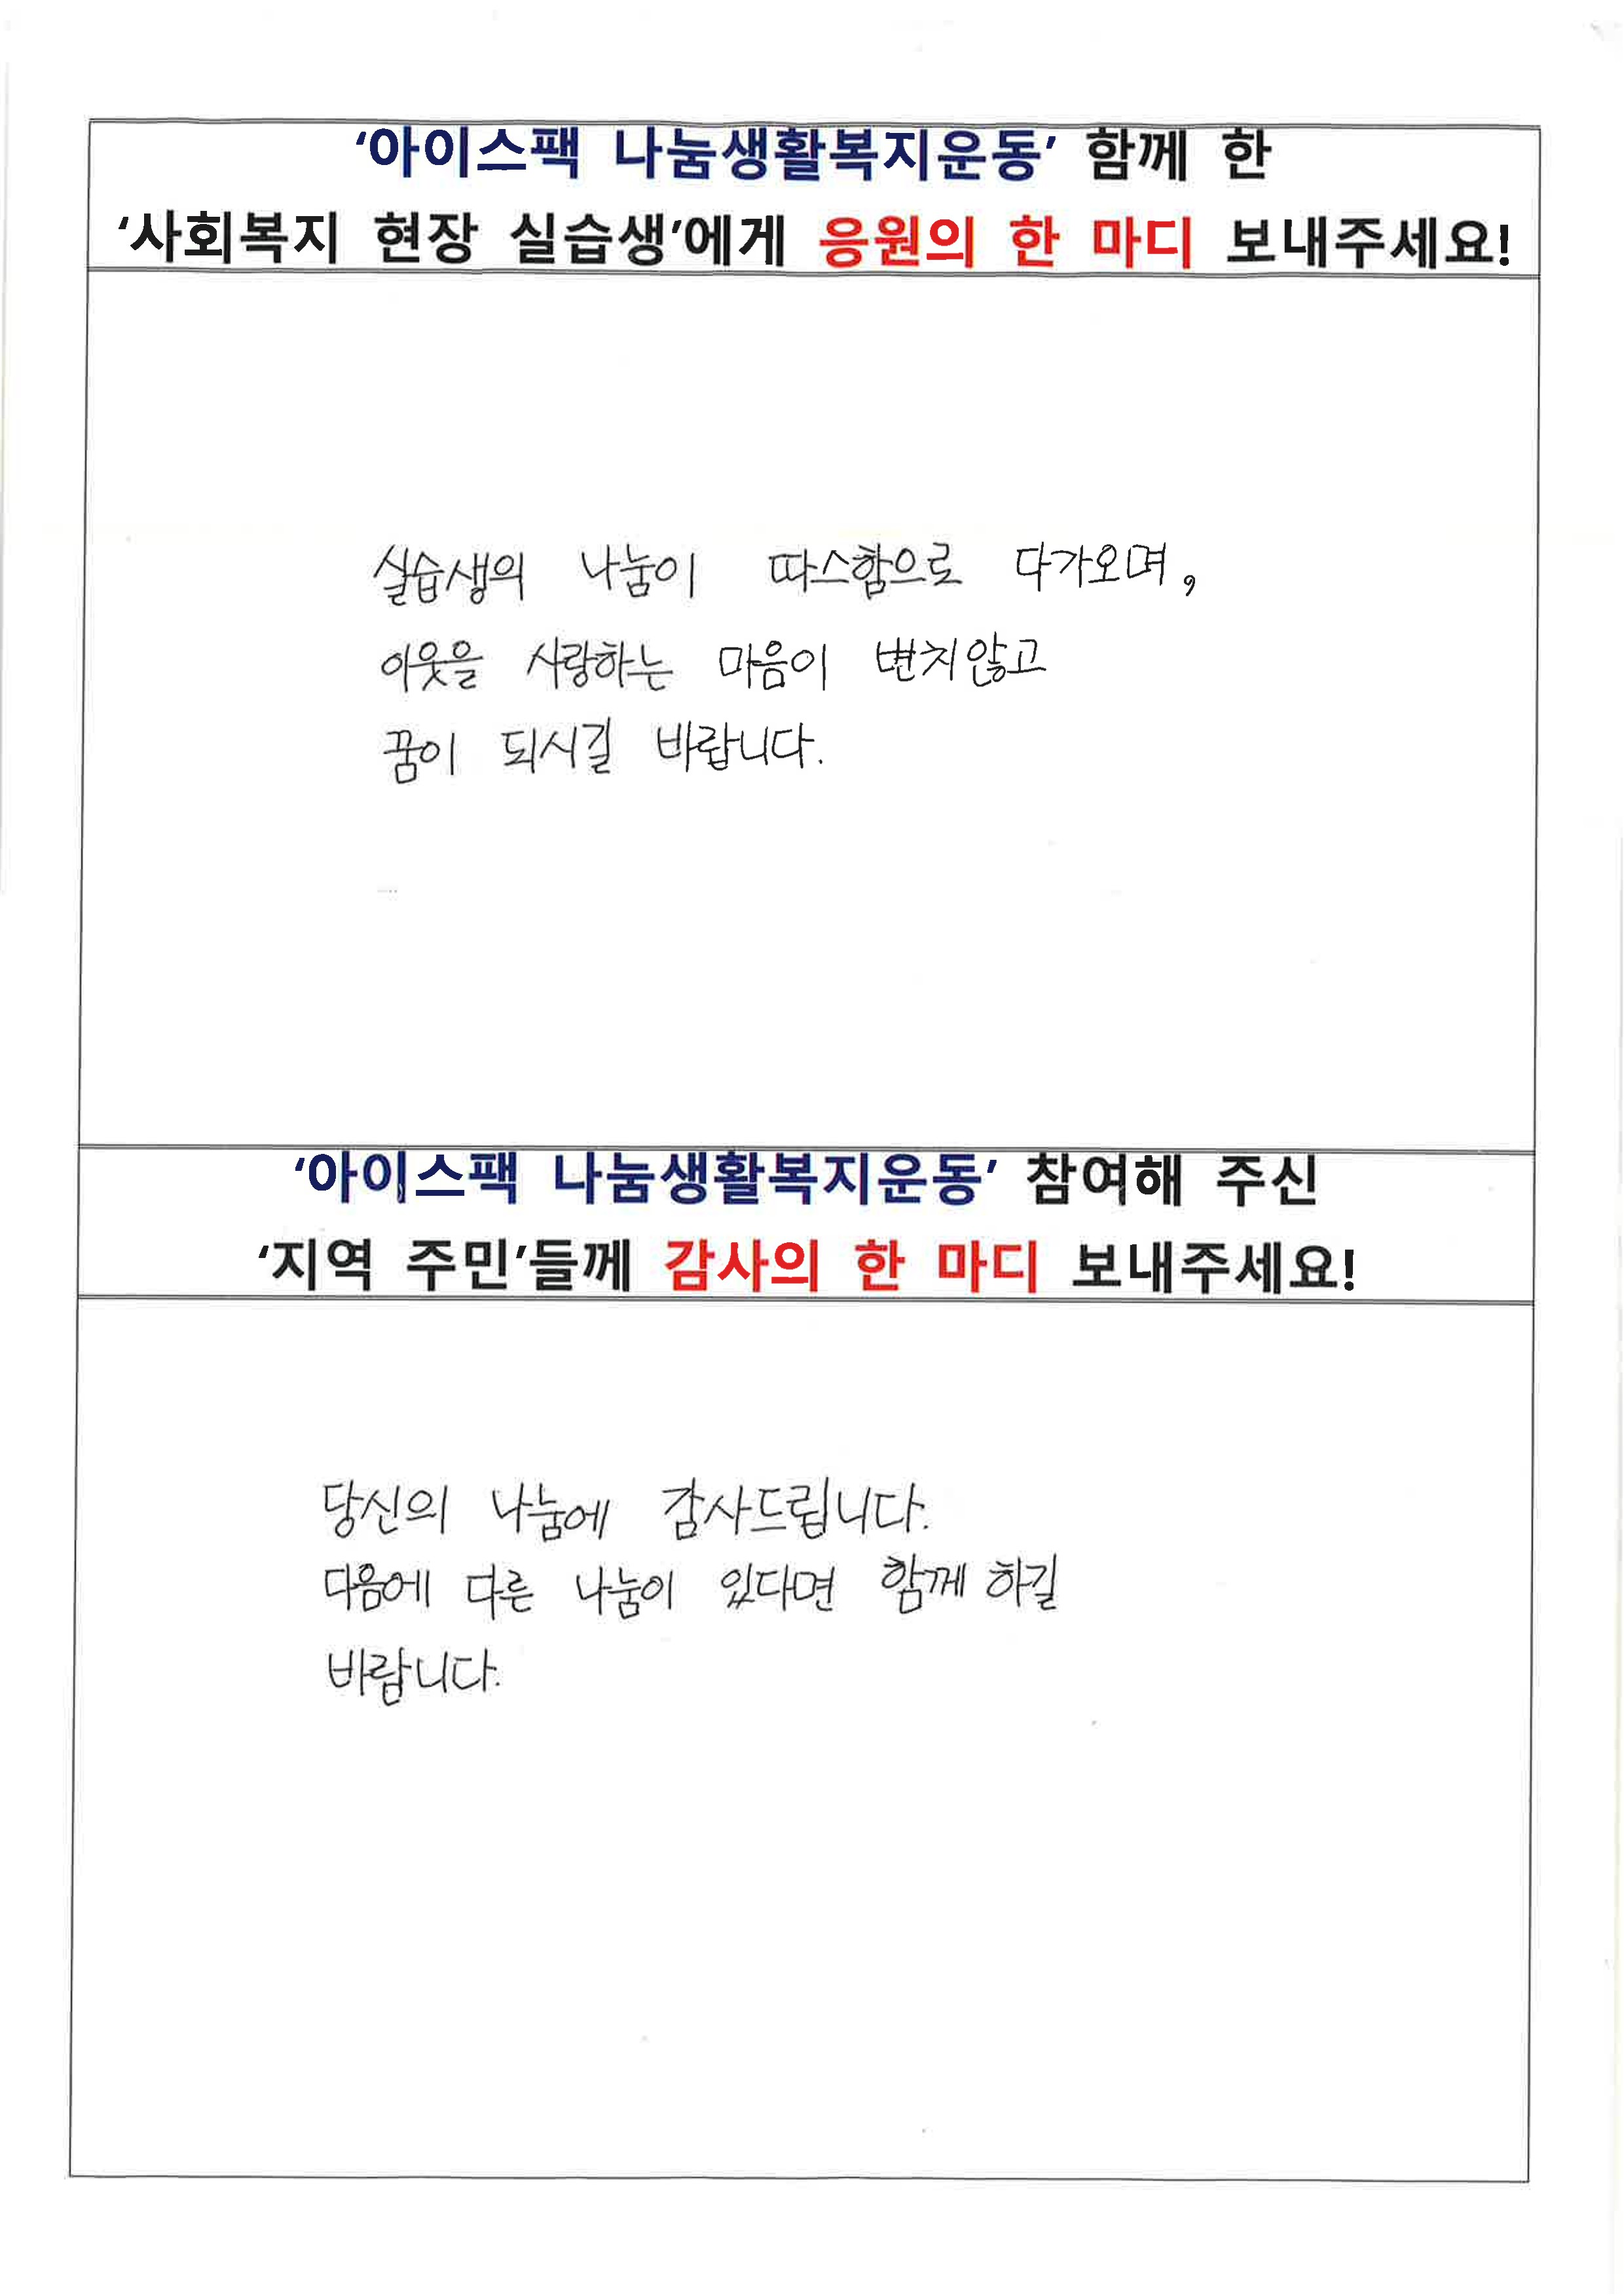 ‘아이스팩 나눔생활복지운동’ 함께 한
‘사회복지 현장 실습생’에게 응원의 한 마디 보내주세요!
실습생의 나눔이 따스함으로 다가오며,
이웃을 사랑하는 마음이 변치않고
꿈이 되시길 바랍니다.
‘아이스팩 나눔생활복지운동’ 참여해 주신
‘지역 주민’들께 감사의 한 마디 보내주세요!
당신의 나눔에 감사드립니다.
다음에 다른 나눔이 있다면 함께 하길
바랍니다.